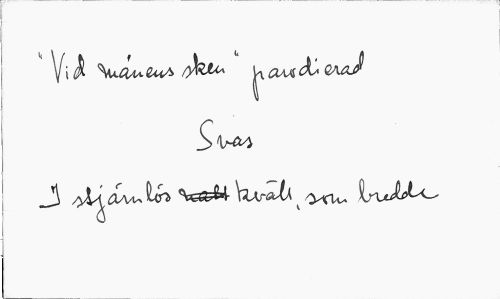 "Vid månens sken" parodierad
Svas
I stjärnlös natt kväll, som bredde